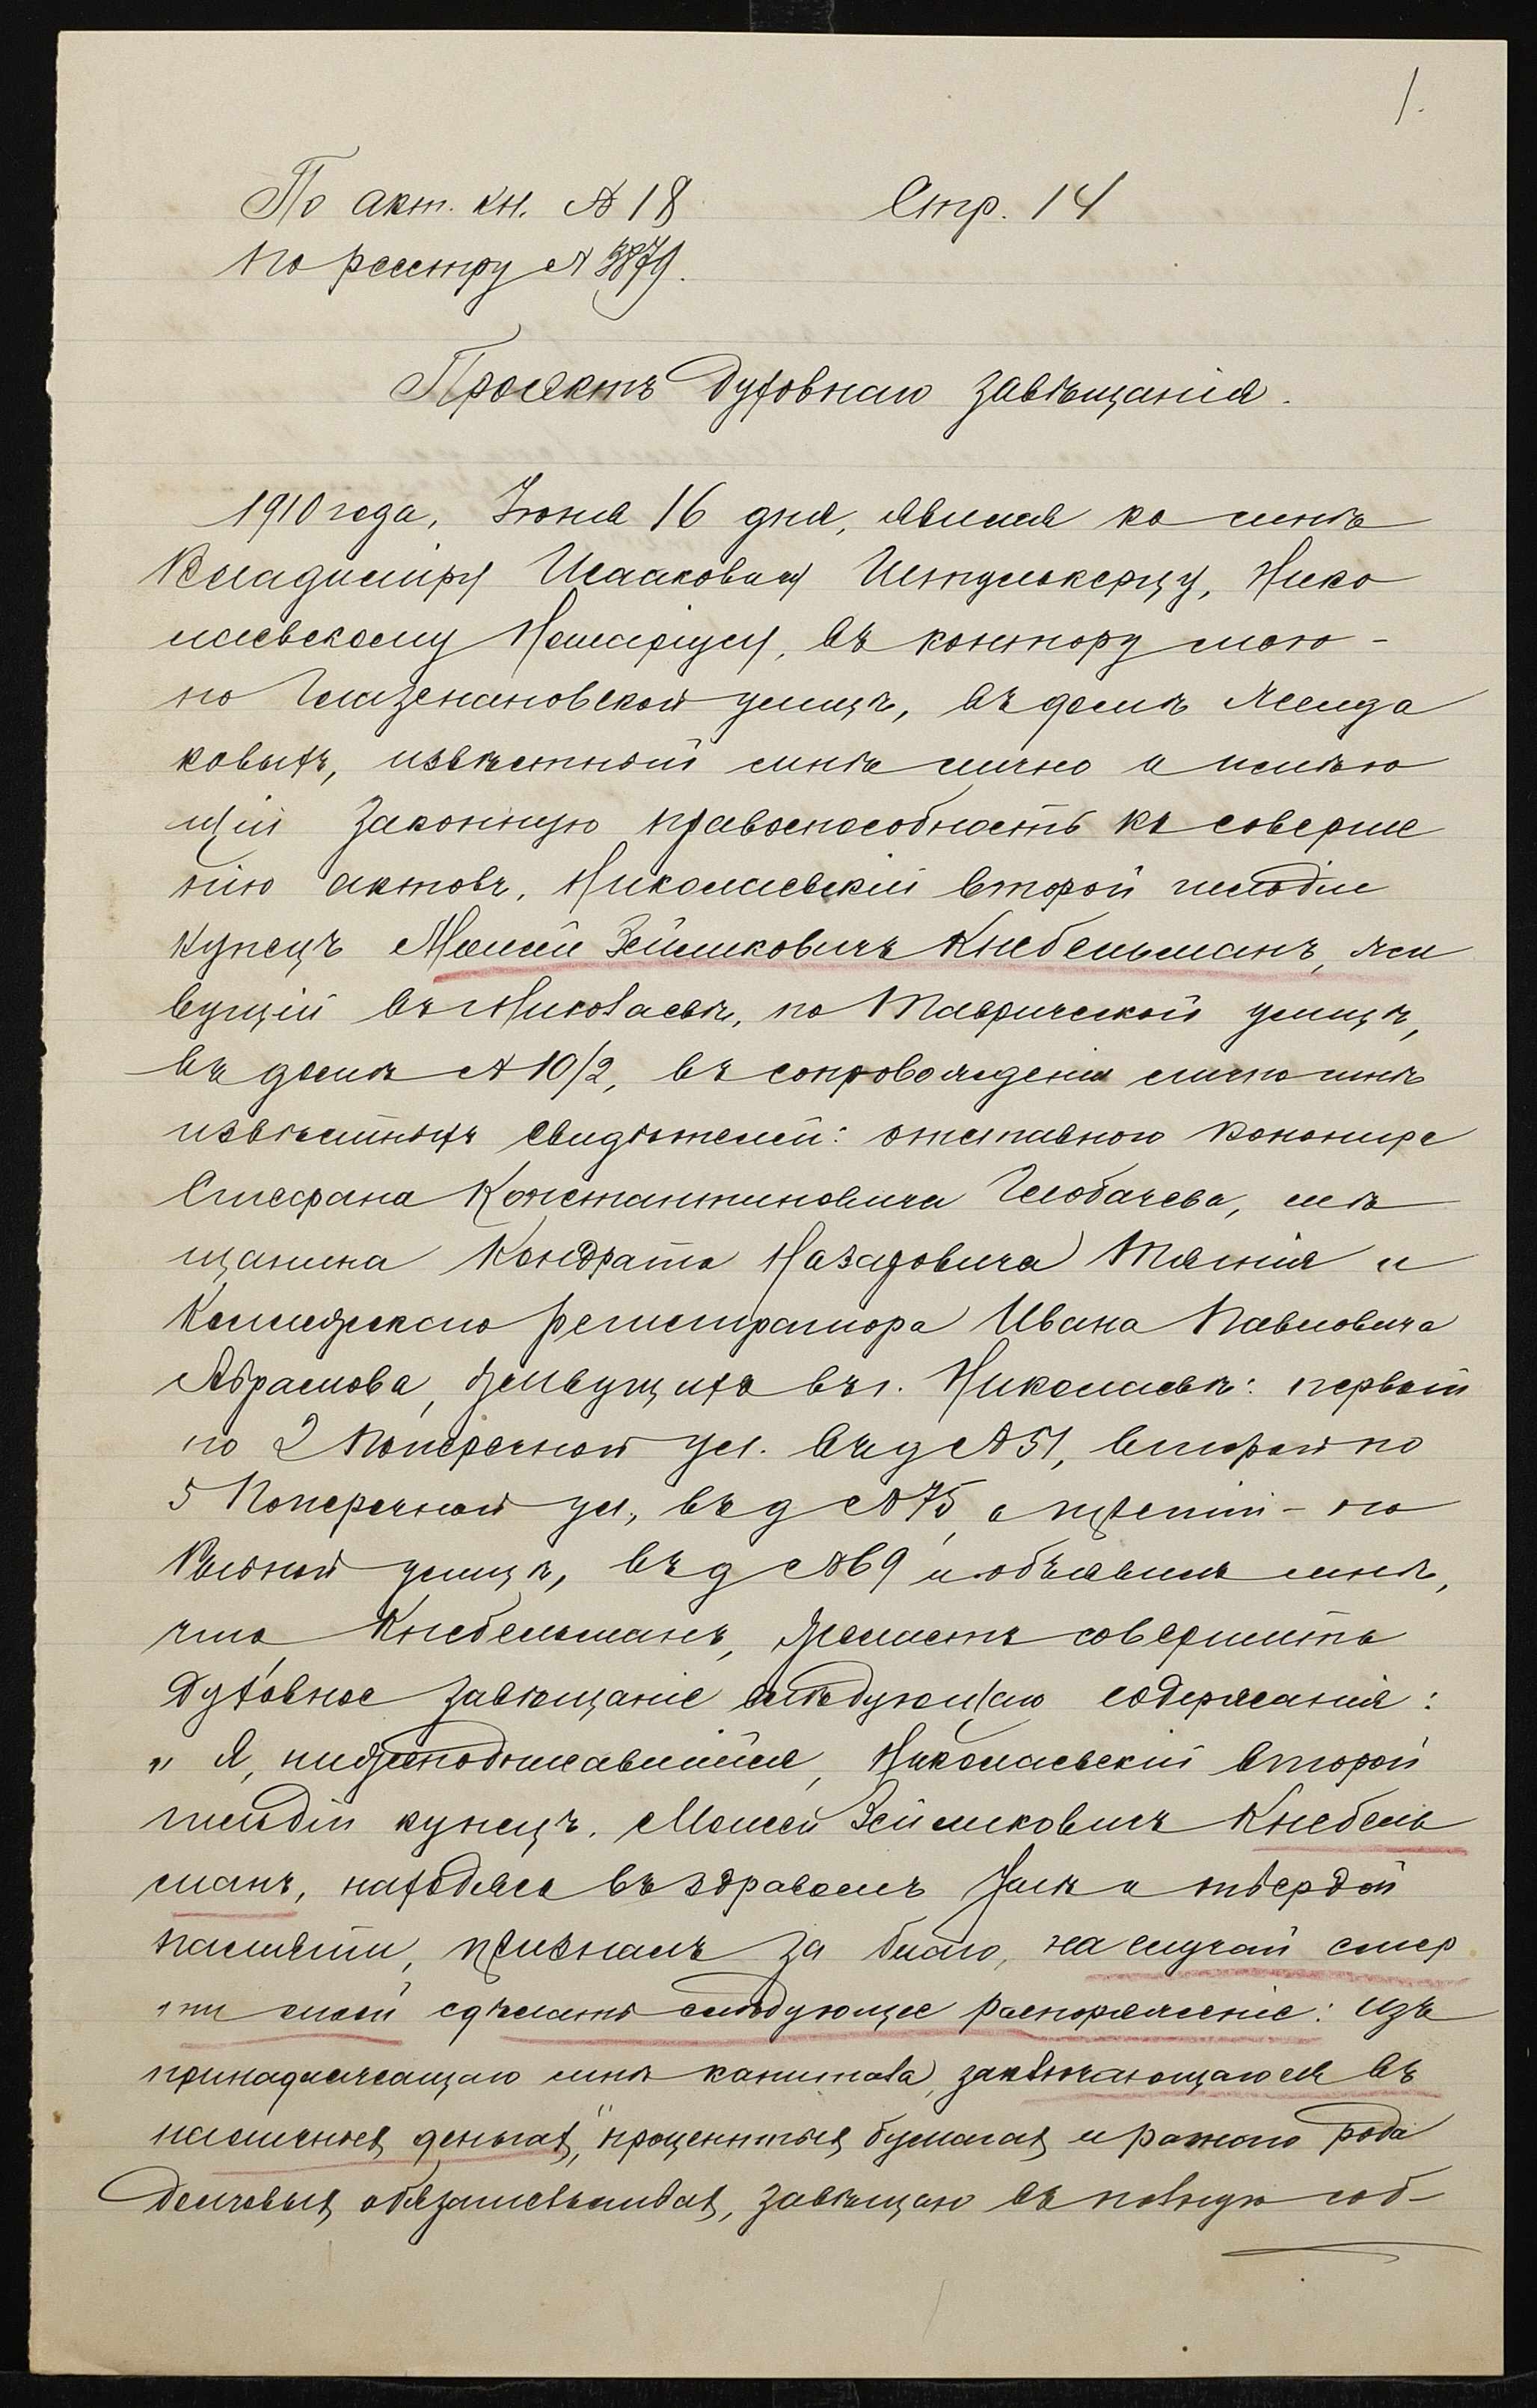 1.
По акт. кн. № 18 Стр. 14
по реестру № 3879.
Проектъ Духовнаго завѣщанія.
1910 года, Іюня 16 дня, явился ко мнѣ
Владиміру Исааковичу Нико
лаевскому Нотаріусу, въ контору мою -
по Глазенаповской улицѣ, въ домѣ
ковыхъ, извѣстный мнѣ лично и имѣю
щій законную правоспособность къ соверше
нію актовъ, Николаевскій второй гильдіи
купецъ Моисей Зейликовичъ Кнебельманъ, жи
вущій въ Николаевѣ, по Таврической улицѣ,
въ домѣ № 10/2, въ сопровожденіи лично мнѣ
извѣстныхъ свидѣтелей: отставного канонира
Стефана Константиновича Глобачева, мѣ
щанина Кондрата Назаровича и
Коллежскаго регистратора Ивана Павловича
Абрамова, живущихъ въ г. Николаевѣ: первый
по 2 Поперечной ул. въ д № 51, второй по
5 Поперечной ул., въ д № 75, а третій - по
Рыбной улицѣ, въ д № 69 и объявилъ мнѣ,
что Кнебельманъ, желаетъ совершить
Духовное завѣщаніе слѣдующаго содержанія:
„ Я, нижеподписавшійся, Николаевскій второй
гильдіи купецъ, Моисей Зейликовичъ Кнебель
манъ, находясь въ здравомъ умѣ и твердой
памяти, призналъ за благо, на случай смер
ти моей сдѣлать слѣдующее распоряженіе: изъ
принадлежащаго мнѣ капитала, заключающагося въ
наличныхъ деньгахъ, процентныхъ бумагахъ и разнаго рода
долговыхъ обязательствахъ, завѣщаю въ полную соб-